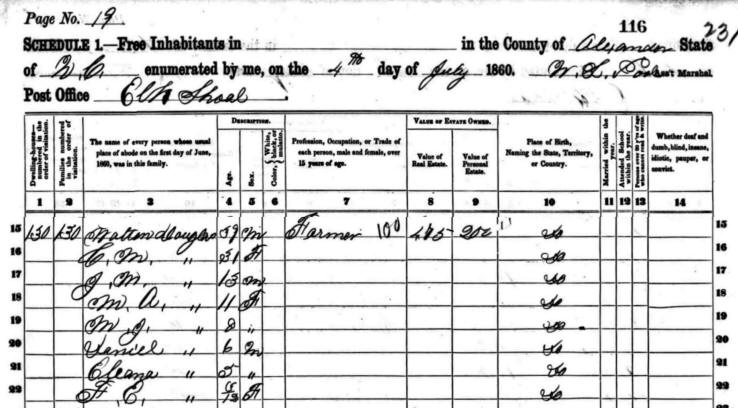 Page No. 19
116
231
SCHEDULE 1.—Free Inhabitants in in the County of Alexander State
of N.C. enumerated by me, on the 4th day of July 1860. W. L. Ass't Marshal.
Post Office Elk Shoal
Dwelling-houses—numbered in the order of visitation.
Families numbered in the order of visitation.
The name of every person whose usual place of abode on the first day of June, 1860, was in this family.
DESCRIPTION.
Age.
Sex.
Color, White, black, or mulatto.
Profession, Occupation, or Trade of each person, male and female, over 15 years of age.
VALUE OF ESTATE OWNED.
Value of Real Estate.
Value of Personal Estate.
Place of Birth, Naming the State, Territory, or Country.
Married within the year.
Attended School within the year.
Persons over 20 y'rs of age who cannot read & write.
Whether deaf and dumb, blind, insane, idiotic, pauper, or convict.
1 2 3 4 5 6 7 8 9 10 11 12 13 14
15 130 130 Douglas 39 M Farmer 100 485 202 Do 15
16 C. M. " 31 F Do 16
17 J. M. " 13 M Do 17
18 M. A. " 11 F Do 18
19 M. J. " 8 " Do 19
20 Daniel " 6 M Do 20
21 Eleana " 5 " Do 21
22 F. E. " F Do 22